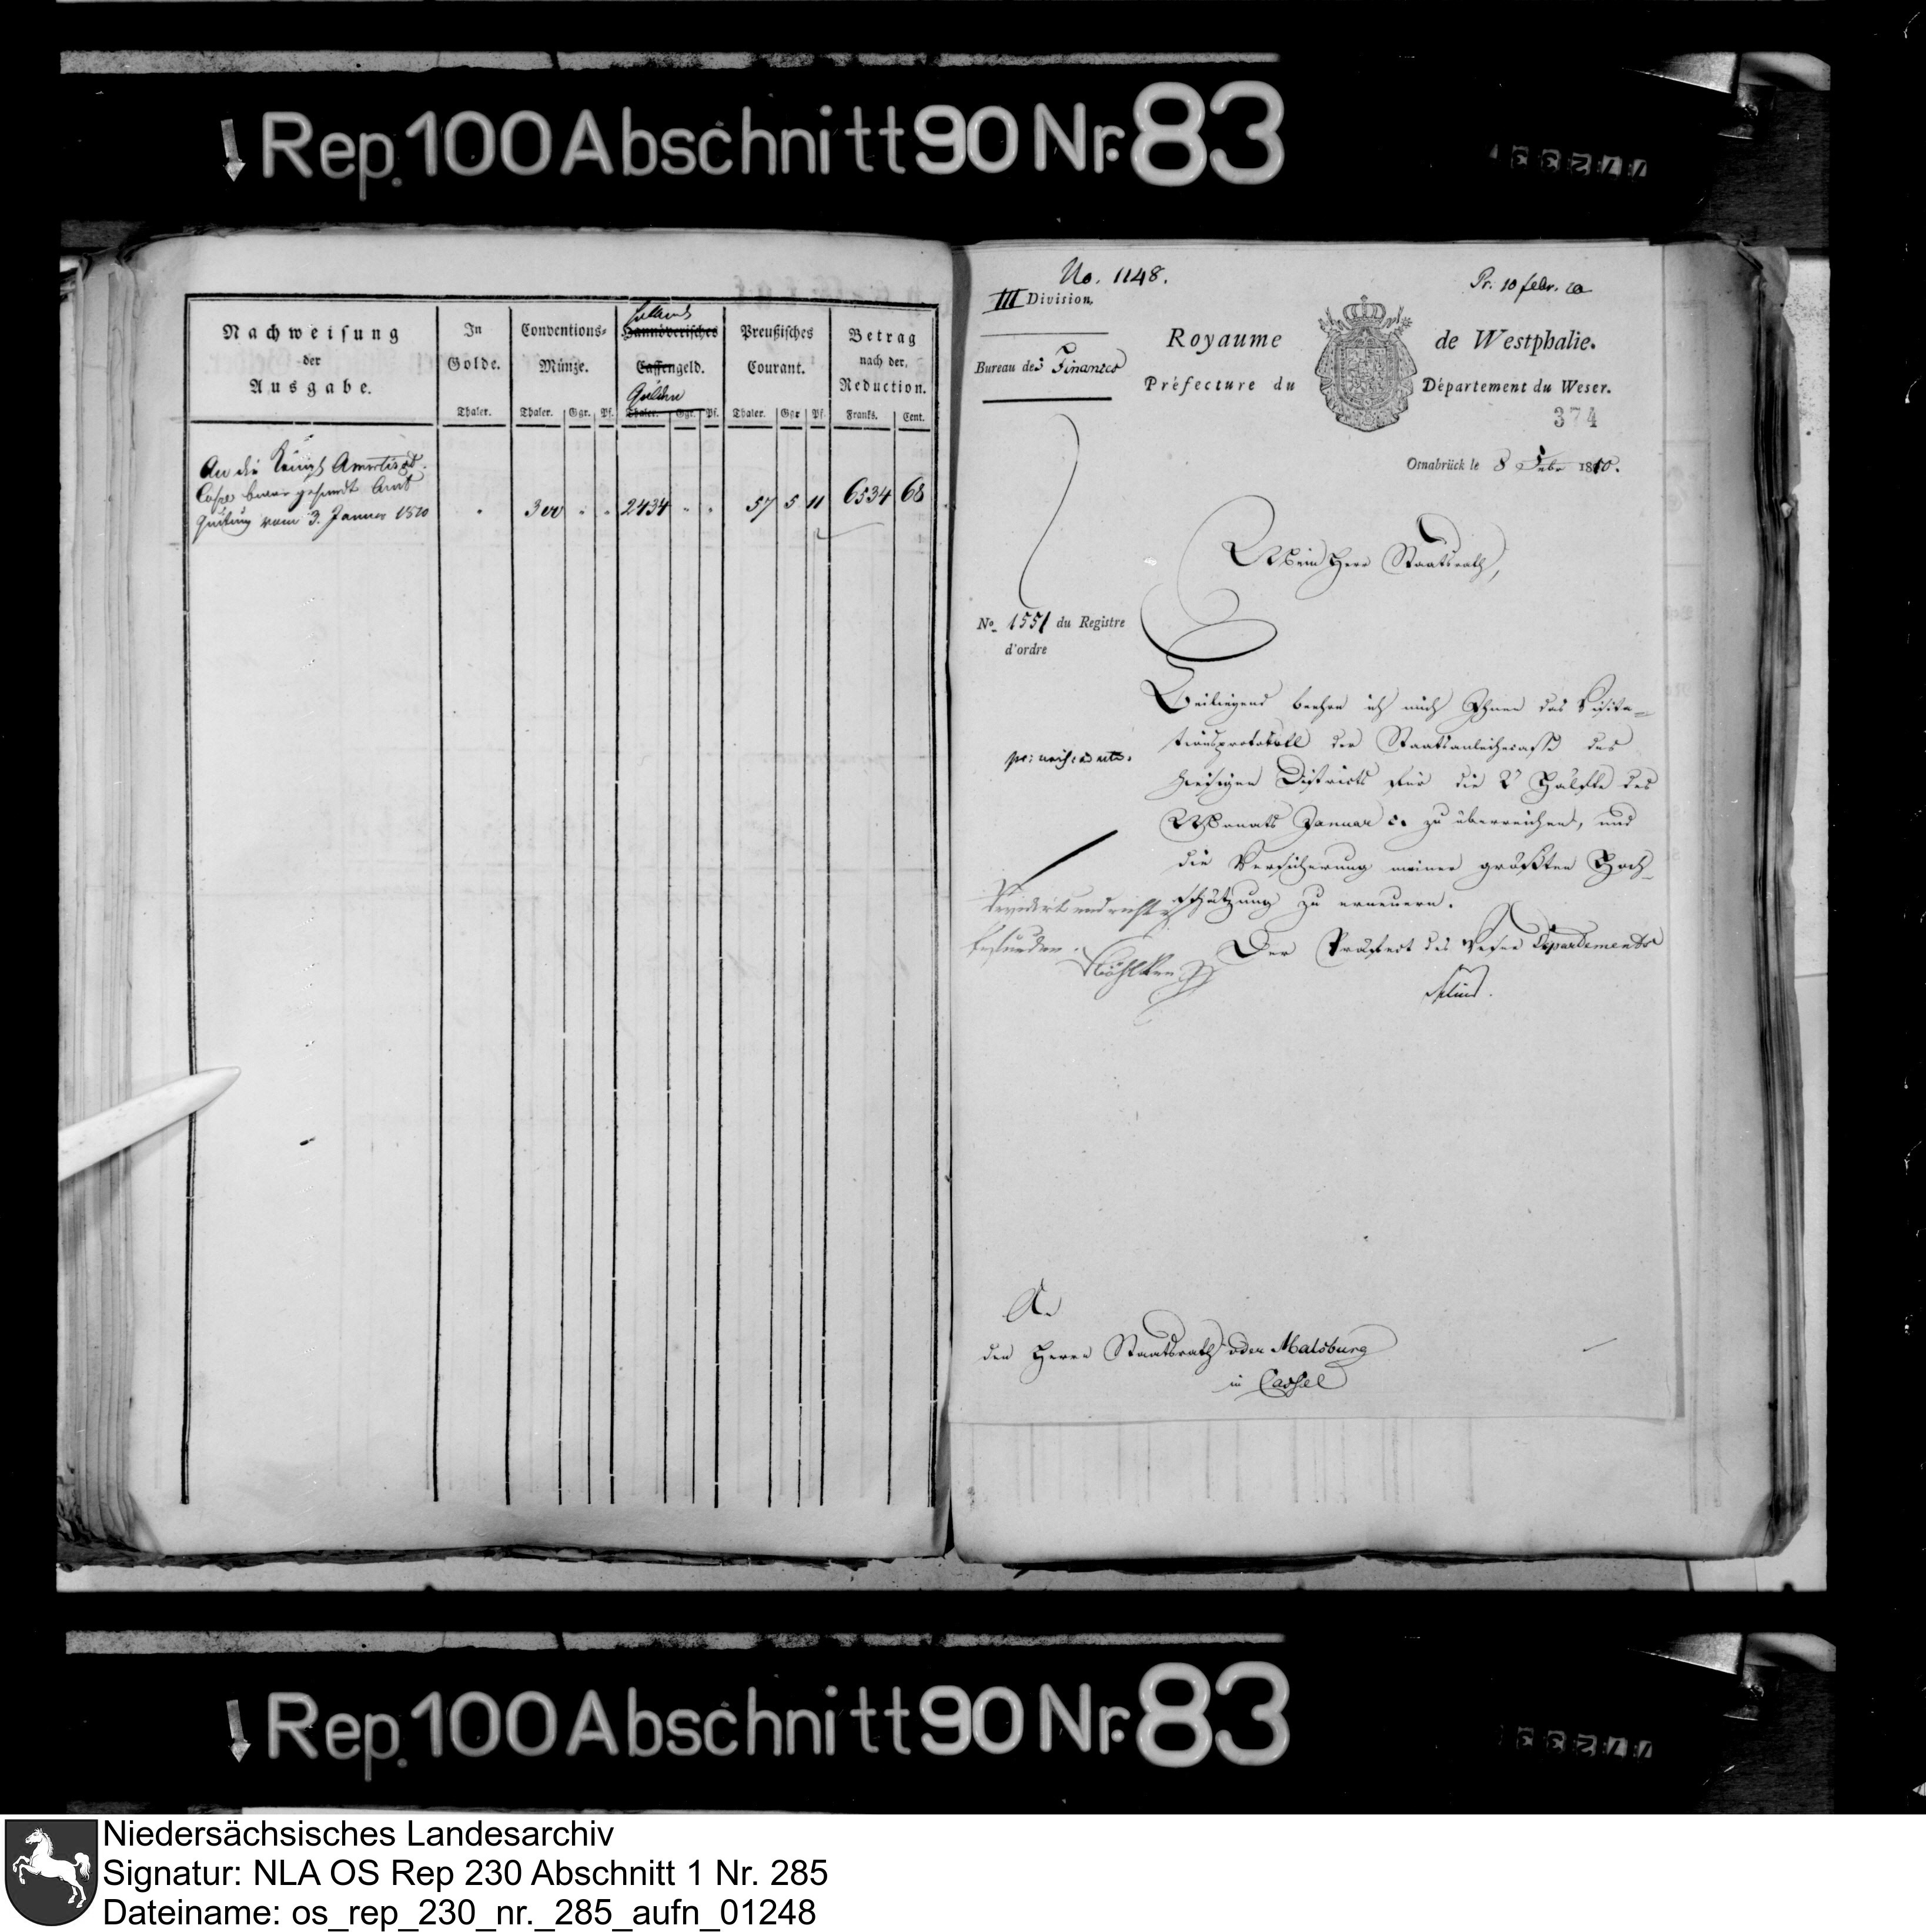 Rep. 100 Abschnitt 90 Nr. 83
77233
Nachweisung
der
Ausgabe.
In
Golde.
Thaler.
Conventions-
Münze.
Thaler. Ggr. Pf.
Hannöverisches
Cassengeld.
Thaler. Ggr. Pf.
Preußisches
Courant.
Thaler. Ggr. Pf.
Betrag
nach der
Reduction.
Franks. Cent.
An die Königl Amortisat.
Casse baar gesandt laut
Quitung vom 3. Januar 1810
300 2434 57 5 11 6534 68
No. 1148.
Pr. 10 febr. 10
III Division.
Royaume de Westphalie.
Bureau des Finances
Préfecture du Département du Weser.
374
Osnabrück le 8 Febr 1810.
Mein Herr Staatsrath,
No. 1551 du Registre
d'ordre
Beiliegend beehre ich mich Ihnen das Visita-
tionsprotokoll der Staatsanleihecasse des
hiesigen Districts für die 2 Hälfte des
Monats Januar c. zu überreichen, und
die Versicherung meiner größten Hoch-
schätzung zu erneuern.
Revidirt und richtig
befunden.
Der Präfect des Weser Departements
An
den Herrn Staatsrath von der Malsburg
in Cassel
Rep. 100 Abschnitt 90 Nr. 83
77233
Niedersächsisches Landesarchiv
Signatur: NLA OS Rep 230 Abschnitt 1 Nr. 285
Dateiname: os_rep_230_nr._285_aufn_01248